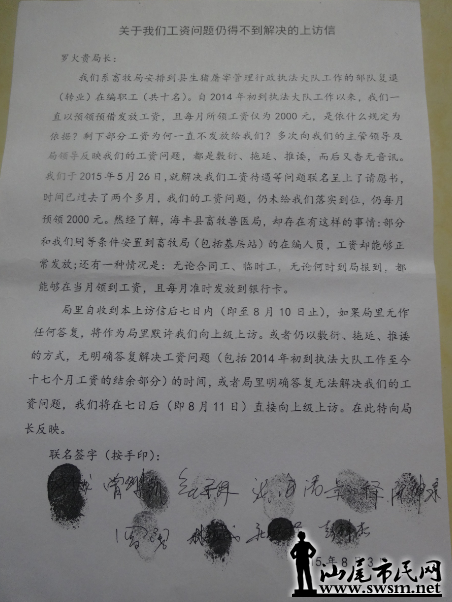 关于我们工资问题仍得不到解决的上访信
罗大贵局长：
我们系畜牧局安排到县生猪屠宰管理行政执法大队工作的部队复退
（转业）在编职工（共十名）。自2014年初到执法大队工作以来，我们一
直以预领预借发放工资，且每月所领工资仅为2000元，是依什么规定为
依据？剩下部分工资为何一直不发放给我们？多次向我们的主管领导及
局领导反映我们的工资问题，都是敷衍、拖延、推诿，而后又杳无音讯。
我们于2015年5月26日，就解决我们工资待遇等问题联名呈上了请愿书，
时间已过去了两个多月，我们的工资问题，仍未给我们落实到位，仍每月
预领2000元。然经了解，海丰县畜牧兽医局，却存在有这样的事情：部分
和我们同等条件安置到畜牧局（包括基层站）的在编人员，工资却能够正
常发放；还有一种情况是：无论合同工、临时工，无论何时到局报到，都
能够在当月领到工资，且每月准时发放到银行卡。
局里自收到本上访信后七日内（即至8月10日止），如果局里无作
任何答复，将作为局里默许我们向上级上访。或者仍以敷衍、拖延、推诿
的方式，无明确答复解决工资问题（包括2014年初到执法大队工作至今
十七个月工资的结余部分）的时间，或者局里明确答复无法解决我们的工
资问题，我们将在七日后（即8月11日）直接向上级上访。在此特向局
长反映。
联名签字（按手印）：
15年8月3
汕尾市民网
www.swsm.net